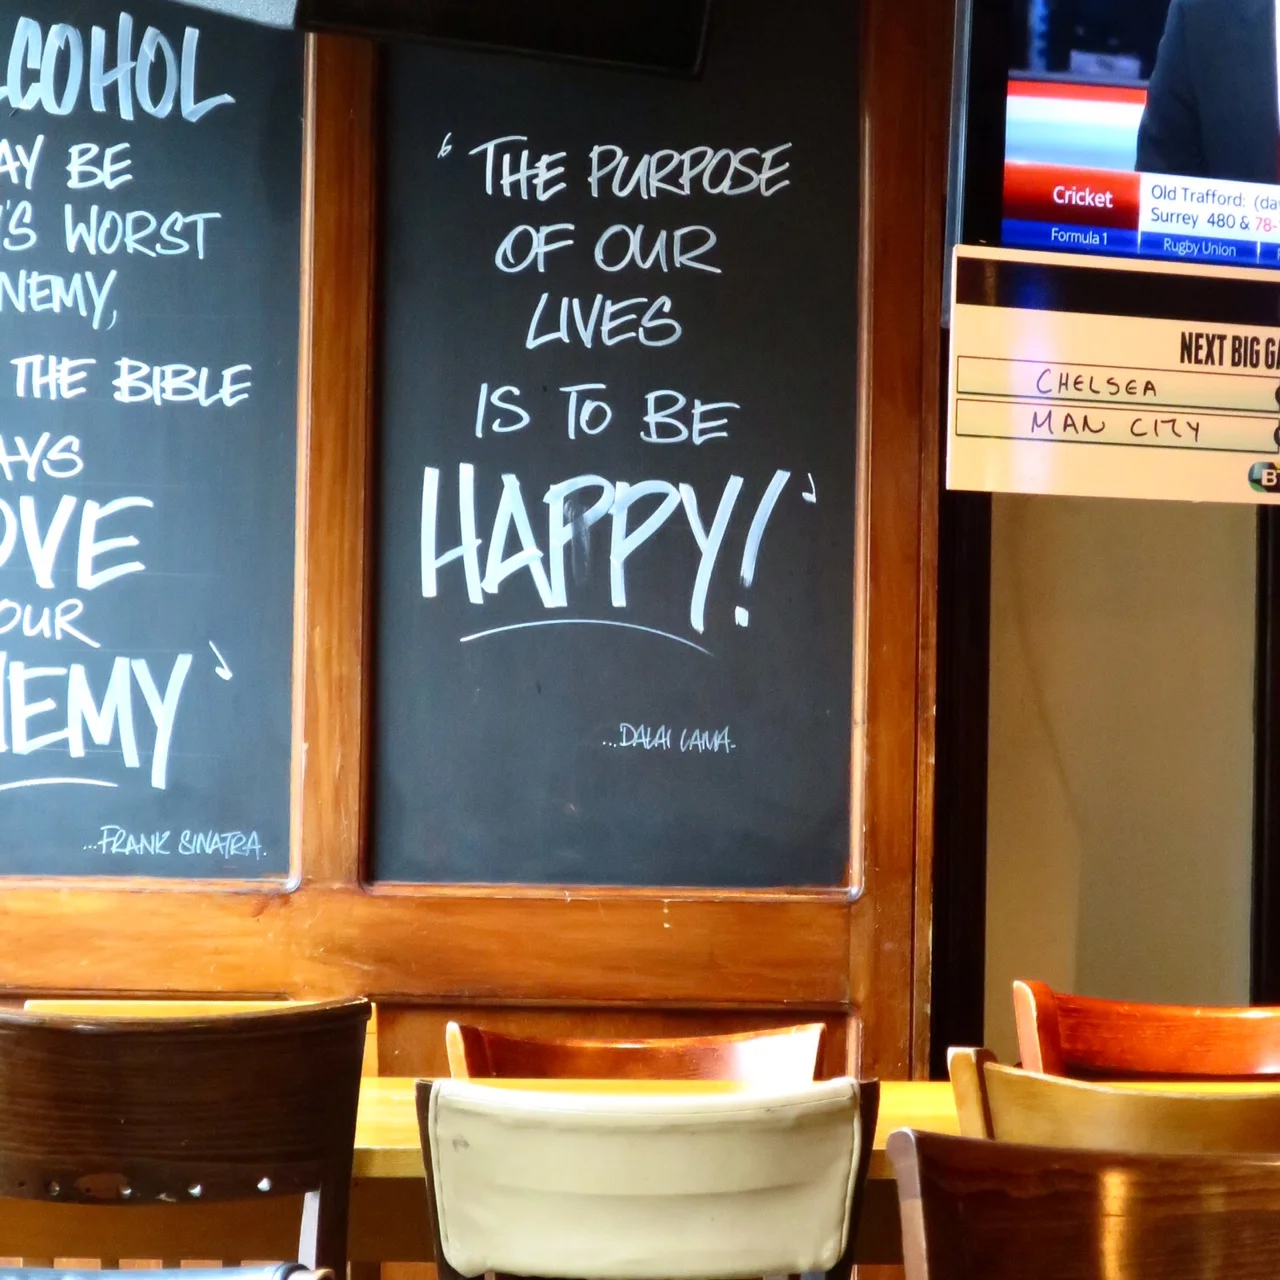 COHOL
AY BE
'S WORST
NEMY,
THE BIBLE
AYS
OVE
OUR
NEMY'
...FRANK SINATRA.
'THE PURPOSE
OF OUR
LIVES
IS TO BE
HAPPY!'
...DALAI LAMA.
Cricket
Old Trafford: (da
Surrey 480 & 78-
Formula 1
Rugby Union
NEXT BIG GA
CHELSEA
MAN CITY
B